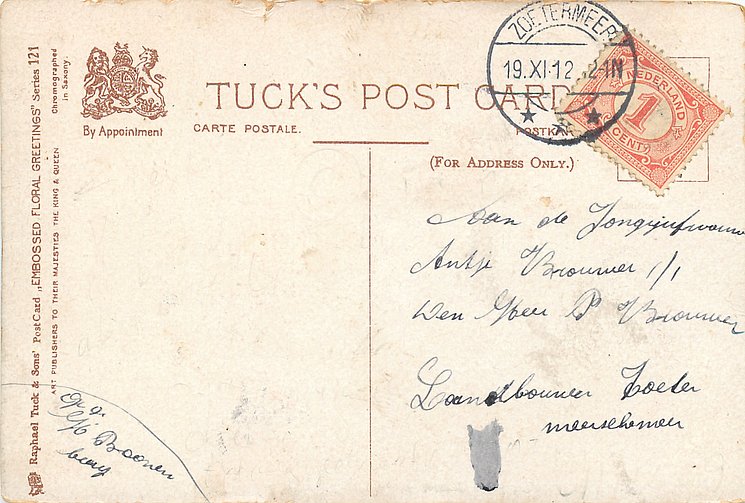 Raphael Tuck & Sons' Post Card „EMBOSSED FLORAL GREETINGS" Series 121
ART PUBLISHERS TO THEIR MAJESTIES THE KING & QUEEN
Chromographed
in Saxony.
By Appointment
TUCK'S POST CARD
CARTE POSTALE.
POSTKA
(FOR ADDRESS ONLY.)
ZOETERMEER
19.XI.12 2-1N
NEDERLAND
1
CENT
Aan de Jongejufvrouw
Antje Brouwer
Den Heer P Brouwer
Landbouwer Zoeter
meersehemeer